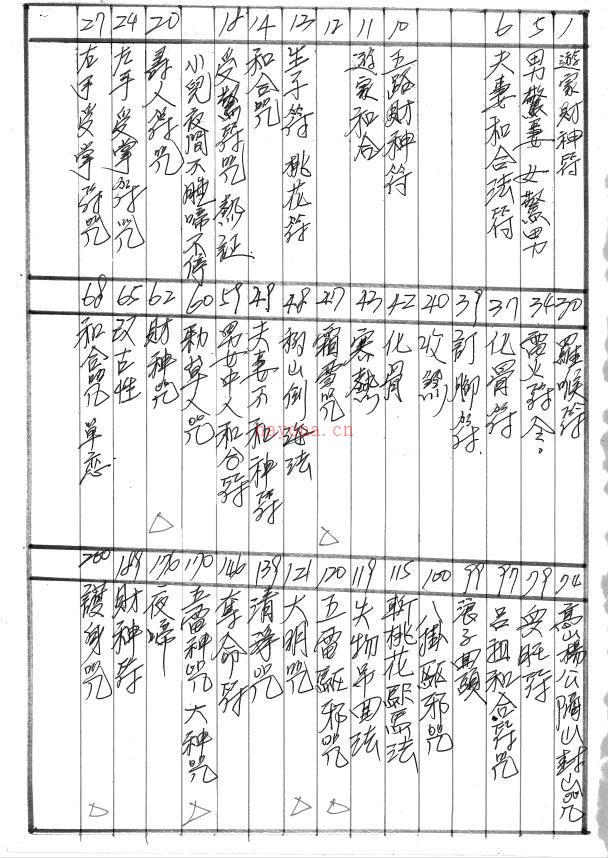 1 遊家財神符
5 男驚妻 女驚男
6 夫妻和合法符
10 五路財神符
11 遊家和合
12
13 生子符 桃花符
14 和合咒
18 受驚符咒 熱証
小兒夜間不睡啼不停
20 壽人符咒
24 左手受掌符咒
27 右手受掌符咒
30 羅喉符
34 雷火符令
37 化骨符
39 訂腳符
40 收驚
42 化骨
43 寒熱
47 霜雪咒
48 移山倒海法
49 夫妻不和神符
59 男女中人和合符
60 勅草人咒
62 財神咒
65 改古性
68 和合咒 單恋
74 高山楊公 隔山封山咒
79 安旺符
97 呂祖和合符咒
99 浪子回頭
100 八掛驅邪咒
115 斬桃花驅寫法
119 失物吊回法
120 五雷驅邪咒
121 大明咒
139 清淨咒
146 奪命符
170 五雷神咒 大神咒
176 夜啼
189 財神符
200 護身咒
nayona.cn